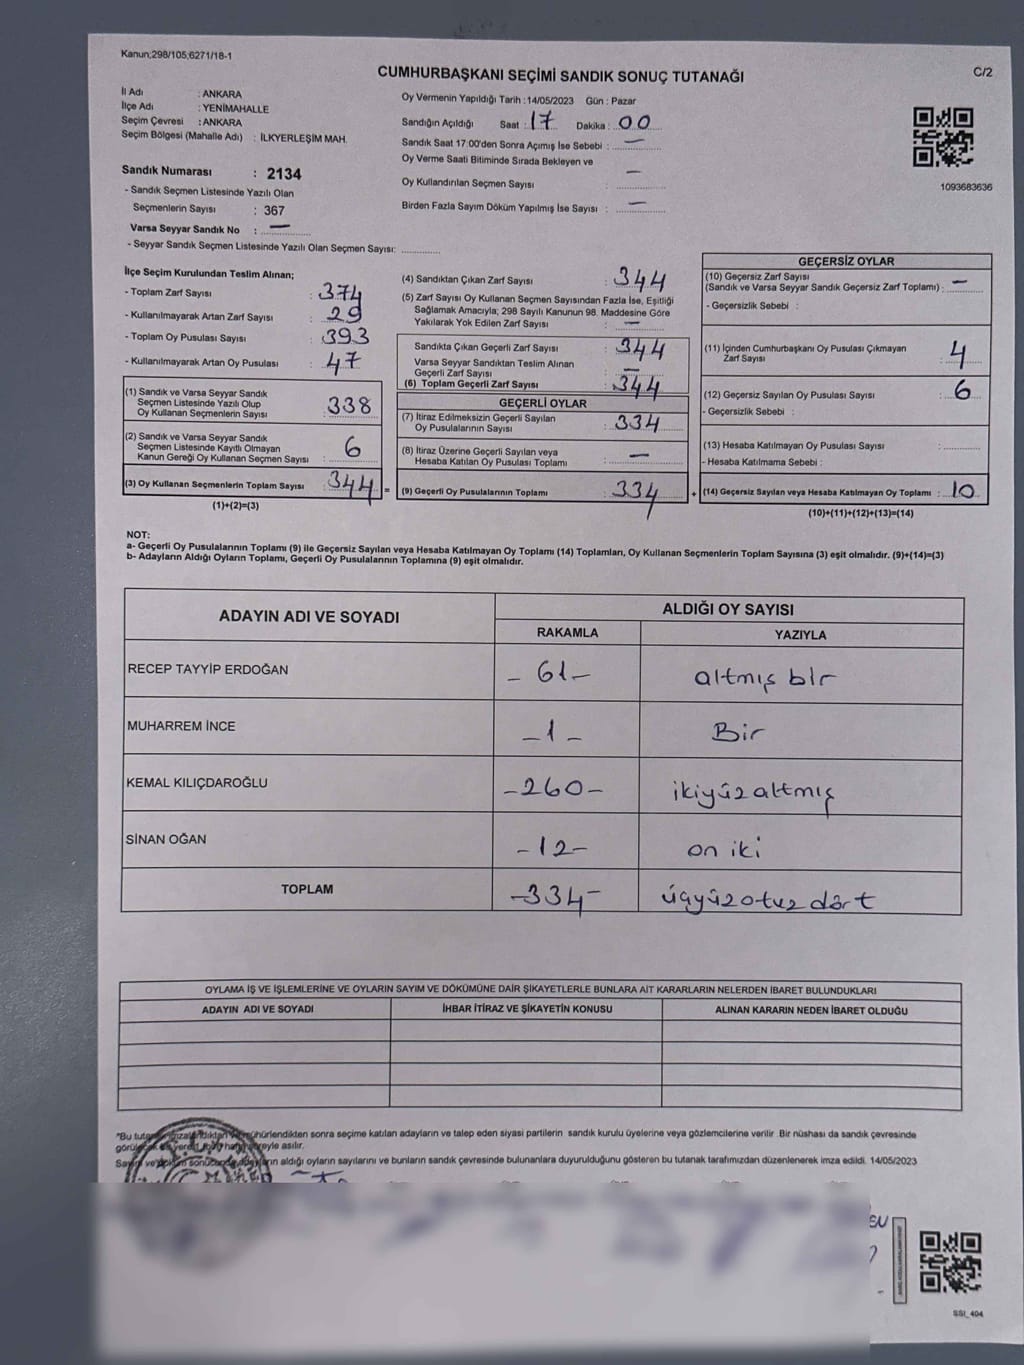 Kanun;298/105;6271/18-1
C/2
CUMHURBAŞKANI SEÇİMİ SANDIK SONUÇ TUTANAĞI
İl Adı : ANKARA
İlçe Adı : YENİMAHALLE
Seçim Çevresi : ANKARA
Seçim Bölgesi (Mahalle Adı) : İLKYERLEŞİM MAH.
Sandık Numarası : 2134
- Sandık Seçmen Listesinde Yazılı Olan
Seçmenlerin Sayısı : 367
Varsa Seyyar Sandık No : —
- Seyyar Sandık Seçmen Listesinde Yazılı Olan Seçmen Sayısı: ............
Oy Vermenin Yapıldığı Tarih : 14/05/2023 Gün : Pazar
Sandığın Açıldığı Saat : 17 Dakika : 00
Sandık Saat 17:00'den Sonra Açımış İse Sebebi : —
Oy Verme Saati Bitiminde Sırada Bekleyen ve
Oy Kullandırılan Seçmen Sayısı : —
Birden Fazla Sayım Döküm Yapılmış İse Sayısı : —
1093683636
İlçe Seçim Kurulundan Teslim Alınan;
- Toplam Zarf Sayısı : 374
- Kullanılmayarak Artan Zarf Sayısı : 29
- Toplam Oy Pusulası Sayısı : 393
- Kullanılmayarak Artan Oy Pusulası : 47
(1) Sandık ve Varsa Seyyar Sandık
Seçmen Listesinde Yazılı Olup
Oy Kullanan Seçmenlerin Sayısı : 338
(2) Sandık ve Varsa Seyyar Sandık
Seçmen Listesinde Kayıtlı Olmayan
Kanun Gereği Oy Kullanan Seçmen Sayısı : 6
(3) Oy Kullanan Seçmenlerin Toplam Sayısı : 344 =
(1)+(2)=(3)
(4) Sandıktan Çıkan Zarf Sayısı : 344
(5) Zarf Sayısı Oy Kullanan Seçmen Sayısından Fazla İse, Eşitliği
Sağlamak Amacıyla; 298 Sayılı Kanunun 98. Maddesine Göre
Yakılarak Yok Edilen Zarf Sayısı : —
Sandıkta Çıkan Geçerli Zarf Sayısı : 344
Varsa Seyyar Sandıktan Teslim Alınan
Geçerli Zarf Sayısı : —
(6) Toplam Geçerli Zarf Sayısı : 344
GEÇERLİ OYLAR
(7) İtiraz Edilmeksizin Geçerli Sayılan
Oy Pusulalarının Sayısı : 334
(8) İtiraz Üzerine Geçerli Sayılan veya
Hesaba Katılan Oy Pusulası Toplamı : —
(9) Geçerli Oy Pusulalarının Toplamı : 334 +
GEÇERSİZ OYLAR
(10) Geçersiz Zarf Sayısı
(Sandık ve Varsa Seyyar Sandık Geçersiz Zarf Toplamı) : —
- Geçersizlik Sebebi :
(11) İçinden Cumhurbaşkanı Oy Pusulası Çıkmayan
Zarf Sayısı : 4
(12) Geçersiz Sayılan Oy Pusulası Sayısı : 6
- Geçersizlik Sebebi :
(13) Hesaba Katılmayan Oy Pusulası Sayısı :
- Hesaba Katılmama Sebebi :
(14) Geçersiz Sayılan veya Hesaba Katılmayan Oy Toplamı : 10
(10)+(11)+(12)+(13)=(14)
NOT:
a- Geçerli Oy Pusulalarının Toplamı (9) ile Geçersiz Sayılan veya Hesaba Katılmayan Oy Toplamı (14) Toplamları, Oy Kullanan Seçmenlerin Toplam Sayısına (3) eşit olmalıdır. (9)+(14)=(3)
b- Adayların Aldığı Oyların Toplamı, Geçerli Oy Pusulalarının Toplamına (9) eşit olmalıdır.
ADAYIN ADI VE SOYADI
ALDIĞI OY SAYISI
RAKAMLA YAZIYLA
RECEP TAYYİP ERDOĞAN – 61 – altmış bir
MUHARREM İNCE – 1 – Bir
KEMAL KILIÇDAROĞLU – 260 – ikiyüzaltmış
SİNAN OĞAN – 12 – on iki
TOPLAM – 334 – üçyüzotuzdört
OYLAMA İŞ VE İŞLEMLERİNE VE OYLARIN SAYIM VE DÖKÜMÜNE DAİR ŞİKAYETLERLE BUNLARA AİT KARARLARIN NELERDEN İBARET BULUNDUKLARI
ADAYIN ADI VE SOYADI İHBAR İTİRAZ VE ŞİKAYETİN KONUSU ALINAN KARARIN NEDEN İBARET OLDUĞU
sonra seçime katılan adayların ve talep eden siyasi partilerin sandık kurulu üyelerine veya gözlemcilerine verilir. Bir nüshası da sandık çevresinde
asılır.
aldığı oyların sayılarını ve bunların sandık çevresinde bulunanlara duyurulduğunu gösteren bu tutanak tarafımızdan düzenlenerek imza edildi. 14/05/2023
SSI_404